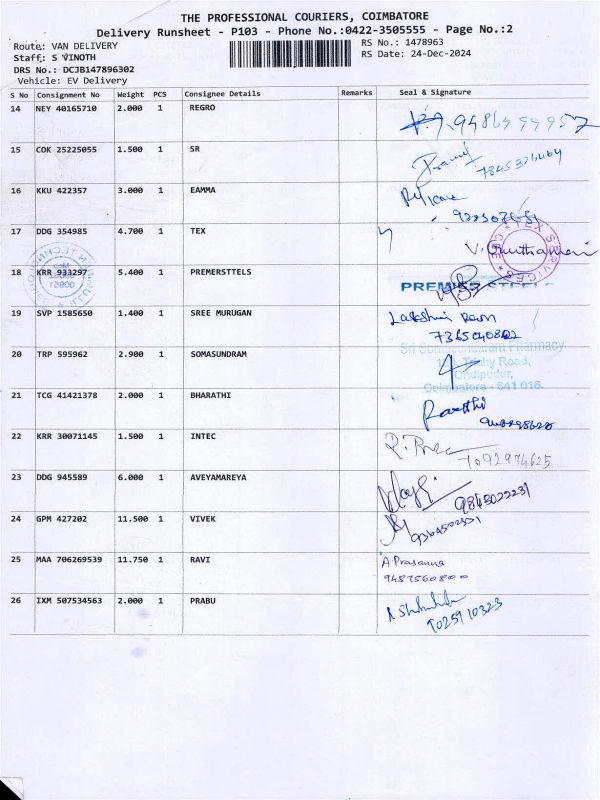 THE PROFESSIONAL COURIERS, COIMBATORE
Delivery Runsheet - P103 - Phone No.:0422-3505555 - Page No.:2
Route: VAN DELIVERY
RS No.: 1478963
Staff: S VINOTH
RS Date: 24-Dec-2024
DRS No.: DCJB147896302
Vehicle: EV Delivery
S No Consignment No Weight PCS Consignee Details Remarks Seal & Signature
14 NEY 40165710 2.000 1 REGRO
15 COK 25225055 1.500 1 SR
16 KKU 422357 3.000 1 EAMMA
17 DDG 354985 4.700 1 TEX
18 KRR 933297 5.400 1 PREMERSTTELS
PREMIER STEELS
19 SVP 1585650 1.400 1 SREE MURUGAN Lakshmi Ram
20 TRP 595962 2.900 1 SOMASUNDRAM
Pharmacy
Trichy Road,
Ondipudur,
Coimbatore - 641 016.
21 TCG 41421378 2.000 1 BHARATHI
22 KRR 30071145 1.500 1 INTEC
7092974625
23 DDG 945589 6.000 1 AVEYAMAREYA
9843022231
24 GPM 427202 11.500 1 VIVEK
25 MAA 706269539 11.750 1 RAVI A Prasanna
9487560800
26 IXM 507534563 2.000 1 PRABU